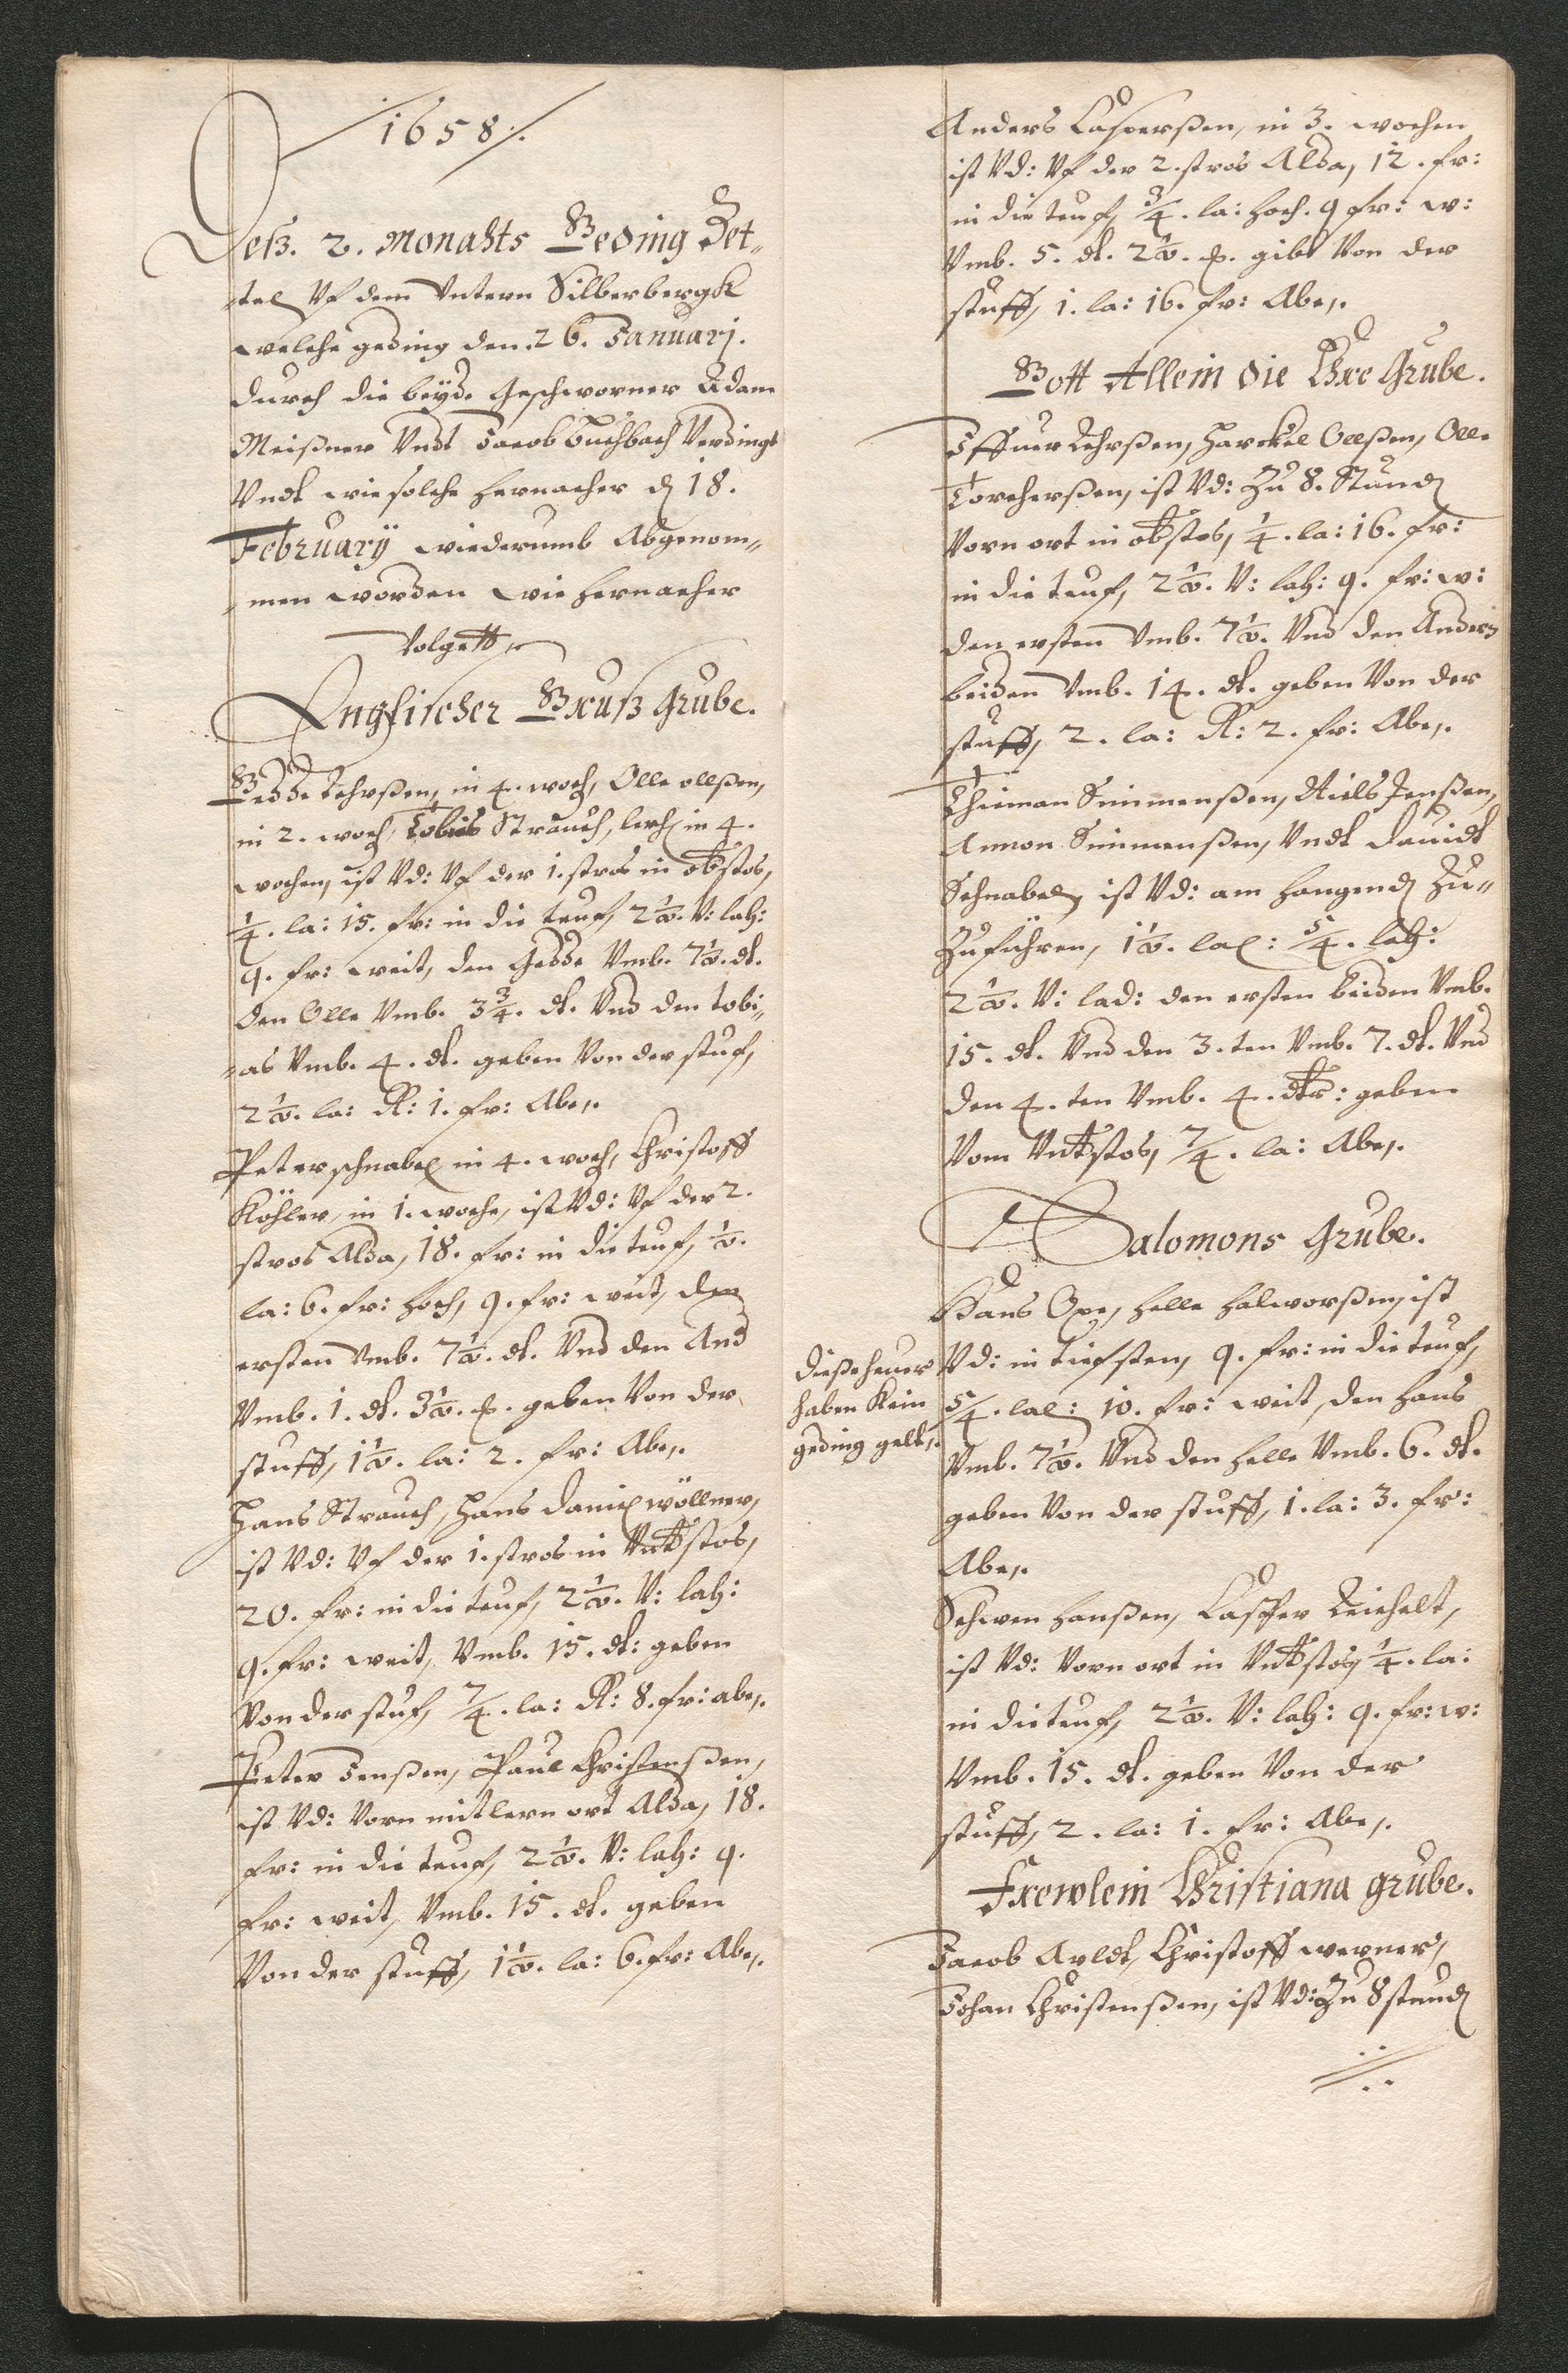 1658/.
Deß. 2. Monahts Geding Zet„
„tel Vf dem Vntern Silberbergk
welche geding den. 26. Januarj.
durch die beyde Geschworner Adam
Meißner Vndt Jacob Buchbach Verdingt
Vndt wie solche hernacher d 18.
February wiederumb Abgenom„
„men worden wie hernacher
Volgett
Englischer Gruß Grube.
Gedde Lehrßen, in 4. woch, Olle ollßen,
in 2. woch, Tobias Strauch, lerh in 4.
wochen, ist Vd: Vf der 1. stros in obstos,
1/4. la: 15. fr: in die teuf, 2 1/2. V: lah:
9. fr: weit, den Gedde Vmb. 7 1/2. dl.
den Olle Vmb. 3 3/4. dl. Vnd den tobi„
„as Vmb. 4. dl. geben Von der stuf,
2 1/2. la: R: 1. fr: Abe,.
Peter schnabel in 4. woch, Christoff
Köhler, in 1. woche, ist Vd: Vf der 2.
stros Alda, 18. fr: in die teuf, 1/2.
la: 6. fr: hoch, 9. fr: weit, den
ersten Vmb. 7 1/2. dl. Vnd den And
Vmb. 1. dl. 3 1/2. geben Von der
stuff, 1 1/2. la: 2. fr: Abe,.
Hans Strauch, Hans Daniel wöllner,
ist Vd: Vf der 1. stros in Vntstos,
20. fr: in die teuf, 2 1/2. V: lah:
9. fr: weit, Vmb. 15. dl: geben
Von der stuf, 7/4. la: R: 8. fr: abe,.
Peter Jenßen, Paul Christenßen,
ist Vd: Vorn mitlern ort Alda, 18.
fr: in die teuf, 2 1/2. V: lah: 9.
fr: weit, Vmb. 15. dl. geben
Von der stuff, 1 1/2. la: 6. fr: Abe,.
Anders Casperßen, in 3. wochen
ist Vd: Vf der 2. stros Alda, 12. fr:
in die teuf, 3/4. la: hoch. 9 fr: w:
Vmb. 5. dl. 2 1/2. gibt Von der
stuff, 1. la: 16. fr: Abe,.
Gott Allein die Ehre Grube.
Iffuer Lehrßen, Harckel Ollßen, Olle
Torcherßen, ist Vd: Zu 8. Stund
Vorn ort in obstos, 1/4. la: 16. fr:
in die teuf, 2 1/2. V: lah: 9. fr: w:
den ersten Vmb. 7 1/2. Vnd den Andern
beiden Vmb. 14. dl. geben Von der
stuff, 2. la: R: 2. fr: Abe,.
Thieman Simmenßen, Niels Jenßen,
Amon Simmenßen, Vndt Dauidt
Schnabel, ist Vd: am hangend Zu„
Zuführen, 1 1/2. lal: 5/4. lah:
2 1/2. V: lad: den ersten beiden Vmb.
15. dl. Vnd den 3. ten Vmb. 7. dl. Vnd
den 4. ten Vmb. 4. dlr: geben
Vom Vntstos, 7/4. la: Abe,.
Salomons Grube.
Hans Oxe, Helle Halworßen, ist
Vd: in tiefsten, 9. fr: in die teuf,
dieße heuer
haben Kein
geding gelt,.
5/4. lal: 10. fr: weit, den Hans
Vmb. 7 1/2. Vnd den Helle Vmb. 6. dl.
geben Von der stuff, 1. la: 3. fr:
Abe,.
Schwen Hanßen, Casper Reichelt,
ist Vd: Vorn ort in Vntstos, 1/4. la:
in die teuf, 2 1/2. V: lah: 9. fr: w:
Vmb. 15. dl. geben Von der
stuff, 2. la: 1. fr: Abe,.
Frewlein Christiana grube.
Jacob Arldt, Christoff werner,
Johan Christenßen, ist Vd: Zu 8 stund